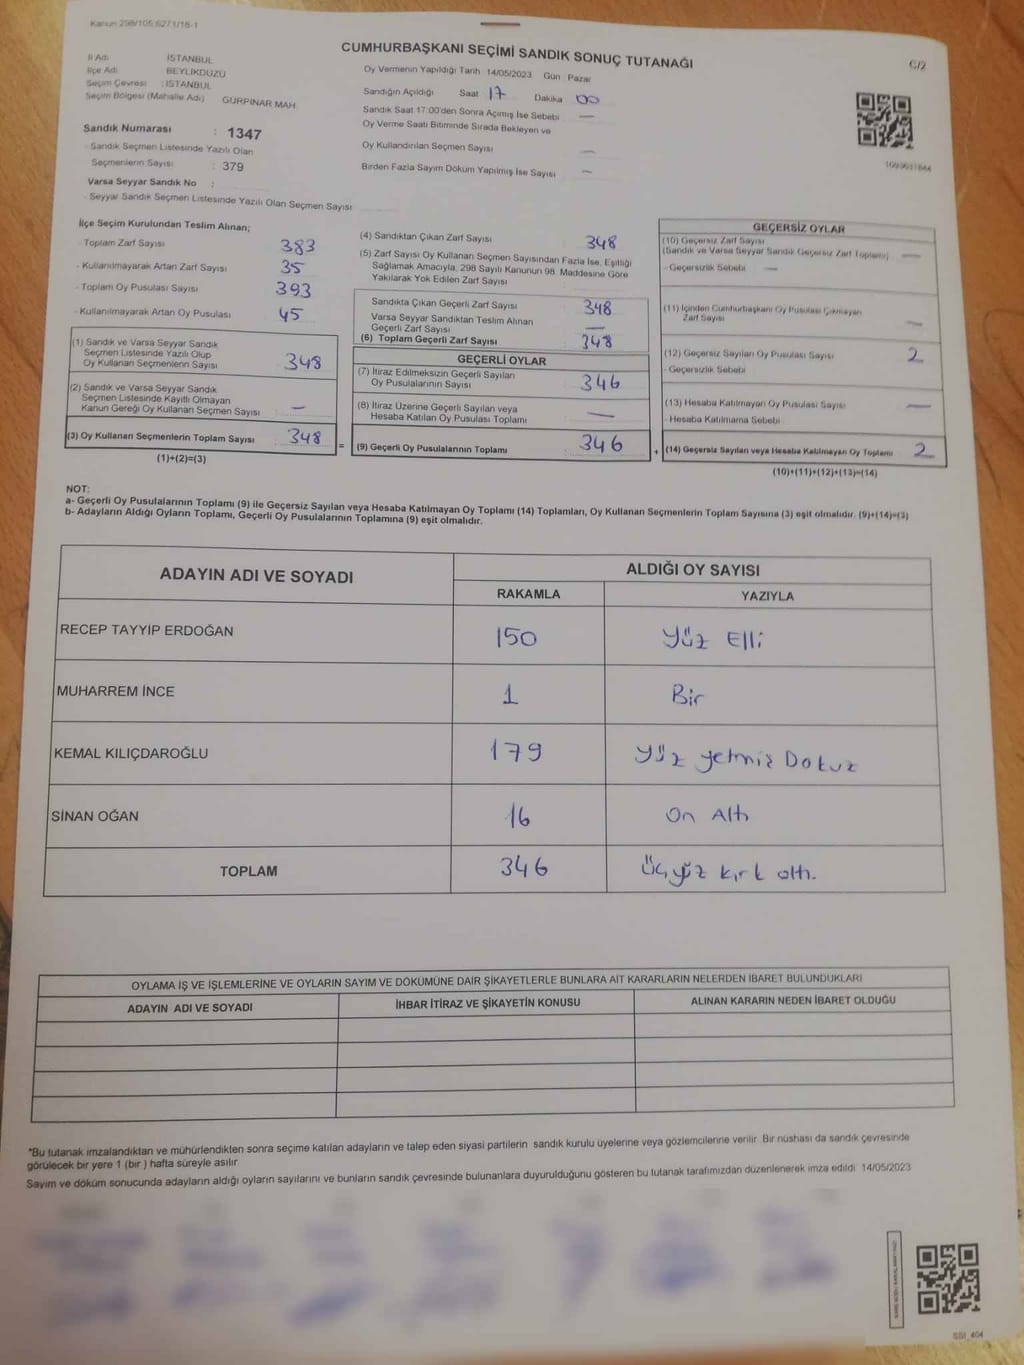 Kanun 298/105,6271/18-1
CUMHURBAŞKANI SEÇİMİ SANDIK SONUÇ TUTANAĞI
C/2
İl Adı : İSTANBUL
İlçe Adı : BEYLİKDÜZÜ
Seçim Çevresi : İSTANBUL
Seçim Bölgesi (Mahalle Adı) GÜRPINAR MAH.
Sandık Numarası : 1347
- Sandık Seçmen Listesinde Yazılı Olan
Seçmenlerin Sayısı : 379
Varsa Seyyar Sandık No :
- Seyyar Sandık Seçmen Listesinde Yazılı Olan Seçmen Sayısı
Oy Vermenin Yapıldığı Tarih 14/05/2023 Gün Pazar
Sandığın Açıldığı Saat 17 Dakika 00
Sandık Saat 17:00'den Sonra Açımış İse Sebebi —
Oy Verme Saati Bitiminde Sırada Bekleyen ve
Oy Kullandırılan Seçmen Sayısı —
Birden Fazla Sayım Döküm Yapılmış İse Sayısı —
İlçe Seçim Kurulundan Teslim Alınan;
- Toplam Zarf Sayısı 383
- Kullanılmayarak Artan Zarf Sayısı 35
- Toplam Oy Pusulası Sayısı 393
- Kullanılmayarak Artan Oy Pusulası 45
(1) Sandık ve Varsa Seyyar Sandık
Seçmen Listesinde Yazılı Olup
Oy Kullanan Seçmenlerin Sayısı 348
(2) Sandık ve Varsa Seyyar Sandık
Seçmen Listesinde Kayıtlı Olmayan
Kanun Gereği Oy Kullanan Seçmen Sayısı —
(3) Oy Kullanan Seçmenlerin Toplam Sayısı 348 =
(1)+(2)=(3)
(4) Sandıktan Çıkan Zarf Sayısı 348
(5) Zarf Sayısı Oy Kullanan Seçmen Sayısından Fazla İse, Eşitliği
Sağlamak Amacıyla, 298 Sayılı Kanunun 98. Maddesine Göre
Yakılarak Yok Edilen Zarf Sayısı
Sandıkta Çıkan Geçerli Zarf Sayısı 348
Varsa Seyyar Sandıktan Teslim Alınan
Geçerli Zarf Sayısı —
(6) Toplam Geçerli Zarf Sayısı 348
GEÇERLİ OYLAR
(7) İtiraz Edilmeksizin Geçerli Sayılan
Oy Pusulalarının Sayısı 346
(8) İtiraz Üzerine Geçerli Sayılan veya
Hesaba Katılan Oy Pusulası Toplamı —
(9) Geçerli Oy Pusulalarının Toplamı 346 +
GEÇERSİZ OYLAR
(10) Geçersiz Zarf Sayısı
(Sandık ve Varsa Seyyar Sandık Geçersiz Zarf Toplamı) —
- Geçersizlik Sebebi —
(11) İçinden Cumhurbaşkanı Oy Pusulası Çıkmayan
Zarf Sayısı —
(12) Geçersiz Sayılan Oy Pusulası Sayısı 2
- Geçersizlik Sebebi
(13) Hesaba Katılmayan Oy Pusulası Sayısı —
- Hesaba Katılmama Sebebi
(14) Geçersiz Sayılan veya Hesaba Katılmayan Oy Toplamı 2
(10)+(11)+(12)+(13)=(14)
NOT:
a- Geçerli Oy Pusulalarının Toplamı (9) ile Geçersiz Sayılan veya Hesaba Katılmayan Oy Toplamı (14) Toplamları, Oy Kullanan Seçmenlerin Toplam Sayısına (3) eşit olmalıdır. (9)+(14)=(3)
b- Adayların Aldığı Oyların Toplamı, Geçerli Oy Pusulalarının Toplamına (9) eşit olmalıdır.
ADAYIN ADI VE SOYADI
ALDIĞI OY SAYISI
RAKAMLA YAZIYLA
RECEP TAYYİP ERDOĞAN 150 Yüz Elli
MUHARREM İNCE 1 Bir
KEMAL KILIÇDAROĞLU 179 Yüz Yetmiş Dokuz
SİNAN OĞAN 16 On Altı
TOPLAM 346 Üçyüz kırk altı.
OYLAMA İŞ VE İŞLEMLERİNE VE OYLARIN SAYIM VE DÖKÜMÜNE DAİR ŞİKAYETLERLE BUNLARA AİT KARARLARIN NELERDEN İBARET BULUNDUKLARI
ADAYIN ADI VE SOYADI İHBAR İTİRAZ VE ŞİKAYETİN KONUSU ALINAN KARARIN NEDEN İBARET OLDUĞU
*Bu tutanak imzalandıktan ve mühürlendikten sonra seçime katılan adayların ve talep eden siyasi partilerin sandık kurulu üyelerine veya gözlemcilerine verilir. Bir nüshası da sandık çevresinde
görülecek bir yere 1 (bir ) hafta süreyle asılır
Sayım ve döküm sonucunda adayların aldığı oyların sayılarını ve bunların sandık çevresinde bulunanlara duyurulduğunu gösteren bu tutanak tarafımızdan düzenlenerek imza edildi. 14/05/2023
SSI_404